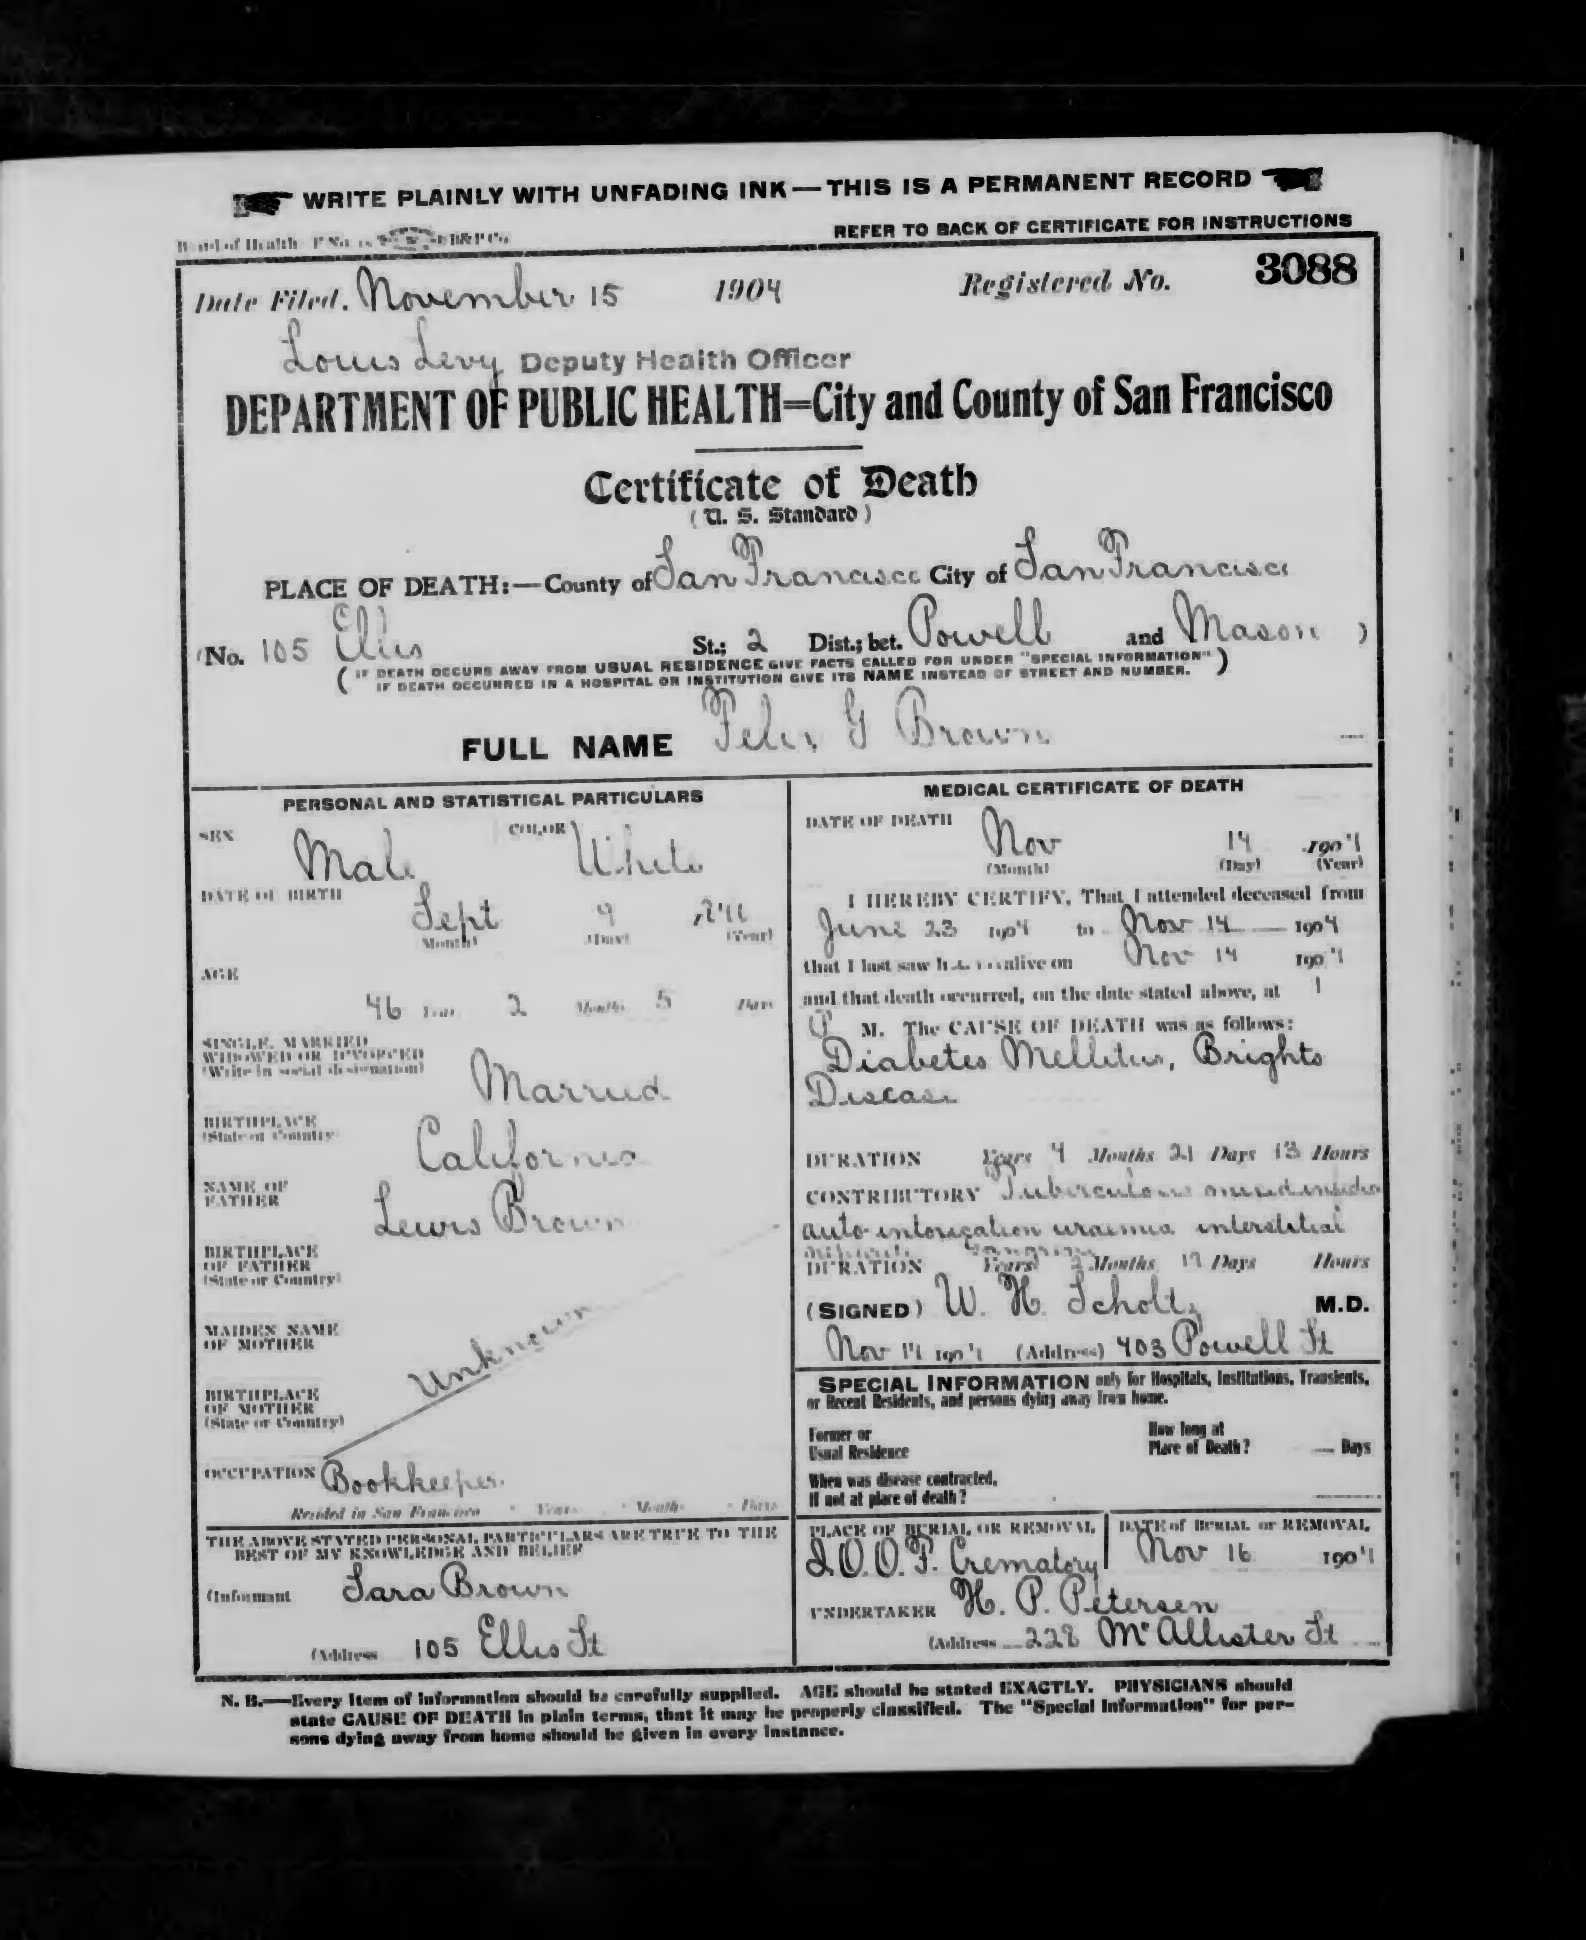 WRITE PLAINLY WITH UNFADING INK—THIS IS A PERMANENT RECORD
Board of Health F No. B&P Co
REFER TO BACK OF CERTIFICATE FOR INSTRUCTIONS
Date Filed. November 15 1904 Registered No. 3088
Louis Levy Deputy Health Officer
DEPARTMENT OF PUBLIC HEALTH=City and County of San Francisco
Certificate of Death
(U. S. Standard)
PLACE OF DEATH:—County of San Francisco City of San Francisco
(No. 105 Ellis St.; 2 Dist.; bet. Powell and Mason )
(IF DEATH OCCURS AWAY FROM USUAL RESIDENCE GIVE FACTS CALLED FOR UNDER "SPECIAL INFORMATION"
IF DEATH OCCURRED IN A HOSPITAL OR INSTITUTION GIVE ITS NAME INSTEAD OF STREET AND NUMBER.)
FULL NAME Peter G Brown
PERSONAL AND STATISTICAL PARTICULARS
SEX Male COLOR White
DATE OF BIRTH
Sept 9
(Month) (Day) (Year)
AGE
46 Years 2 Months 5 Days
SINGLE, MARRIED
WIDOWED OR DIVORCED
(Write in social designation)
Married
BIRTHPLACE
(State or Country)
California
NAME OF
FATHER
Lewis Brown
BIRTHPLACE
OF FATHER
(State or Country)
MAIDEN NAME
OF MOTHER
Unknown
BIRTHPLACE
OF MOTHER
(State or Country)
OCCUPATION Bookkeeper
Resided in San Francisco Years Months Days
THE ABOVE STATED PERSONAL PARTICULARS ARE TRUE TO THE
BEST OF MY KNOWLEDGE AND BELIEF
(Informant Sara Brown
(Address 105 Ellis St
MEDICAL CERTIFICATE OF DEATH
DATE OF DEATH
Nov 14 1904
(Month) (Day) (Year)
I HEREBY CERTIFY, That I attended deceased from
June 23 1904 to Nov 14 1904
that I last saw him alive on Nov 14 1904
and that death occurred, on the date stated above, at 1
P M. The CAUSE OF DEATH was as follows:
Diabetes Mellitus, Brights
Disease
DURATION Years 4 Months 21 Days 13 Hours
CONTRIBUTORY Tuberculous
auto-intoxication uraemia interstitial
gangrene
DURATION Years Months Days Hours
(SIGNED) W. H. Scholtz M.D.
Nov 14 1904 (Address) 403 Powell St
SPECIAL INFORMATION only for Hospitals, Institutions, Transients,
or Recent Residents, and persons dying away from home.
Former or
Usual Residence
How long at
Place of Death? Days
When was disease contracted,
If not at place of death?
PLACE OF BURIAL OR REMOVAL
I.O.O.F. Crematory
DATE of BURIAL or REMOVAL
Nov 16 1904
UNDERTAKER H. P. Petersen
(Address 228 McAllister St
N. B.—Every item of information should be carefully supplied. AGE should be stated EXACTLY. PHYSICIANS should
state CAUSE OF DEATH in plain terms, that it may be properly classified. The "Special Information" for per-
sons dying away from home should be given in every instance.